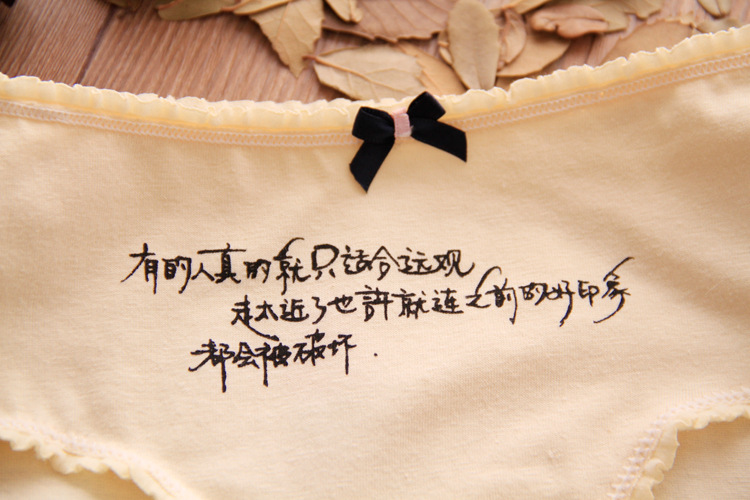 有的人真的就只适合远观
走太近了也許就连之前的好印象
都会被破坏.